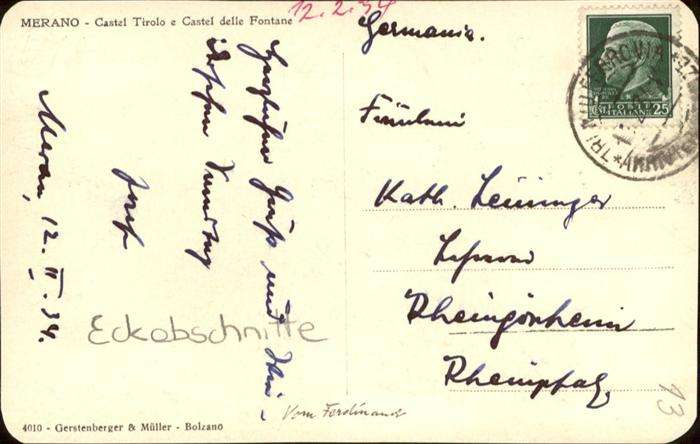 MERANO - Castel Tirolo e Castel delle Fontane
12.2.34
Meran, 12. II. 34.
Herzlichen Gruß und Ihnen
schönen Sonntag
Josef
Eckabschnitte
Vom Ferdinand
4010 - Gerstenberger & Müller - Bolzano
Germania.
Fräulein
Kath. Leininger
Lehrerin
Rheingönheim
Rheinpfalz
POSTE
ITALIANE
25
13